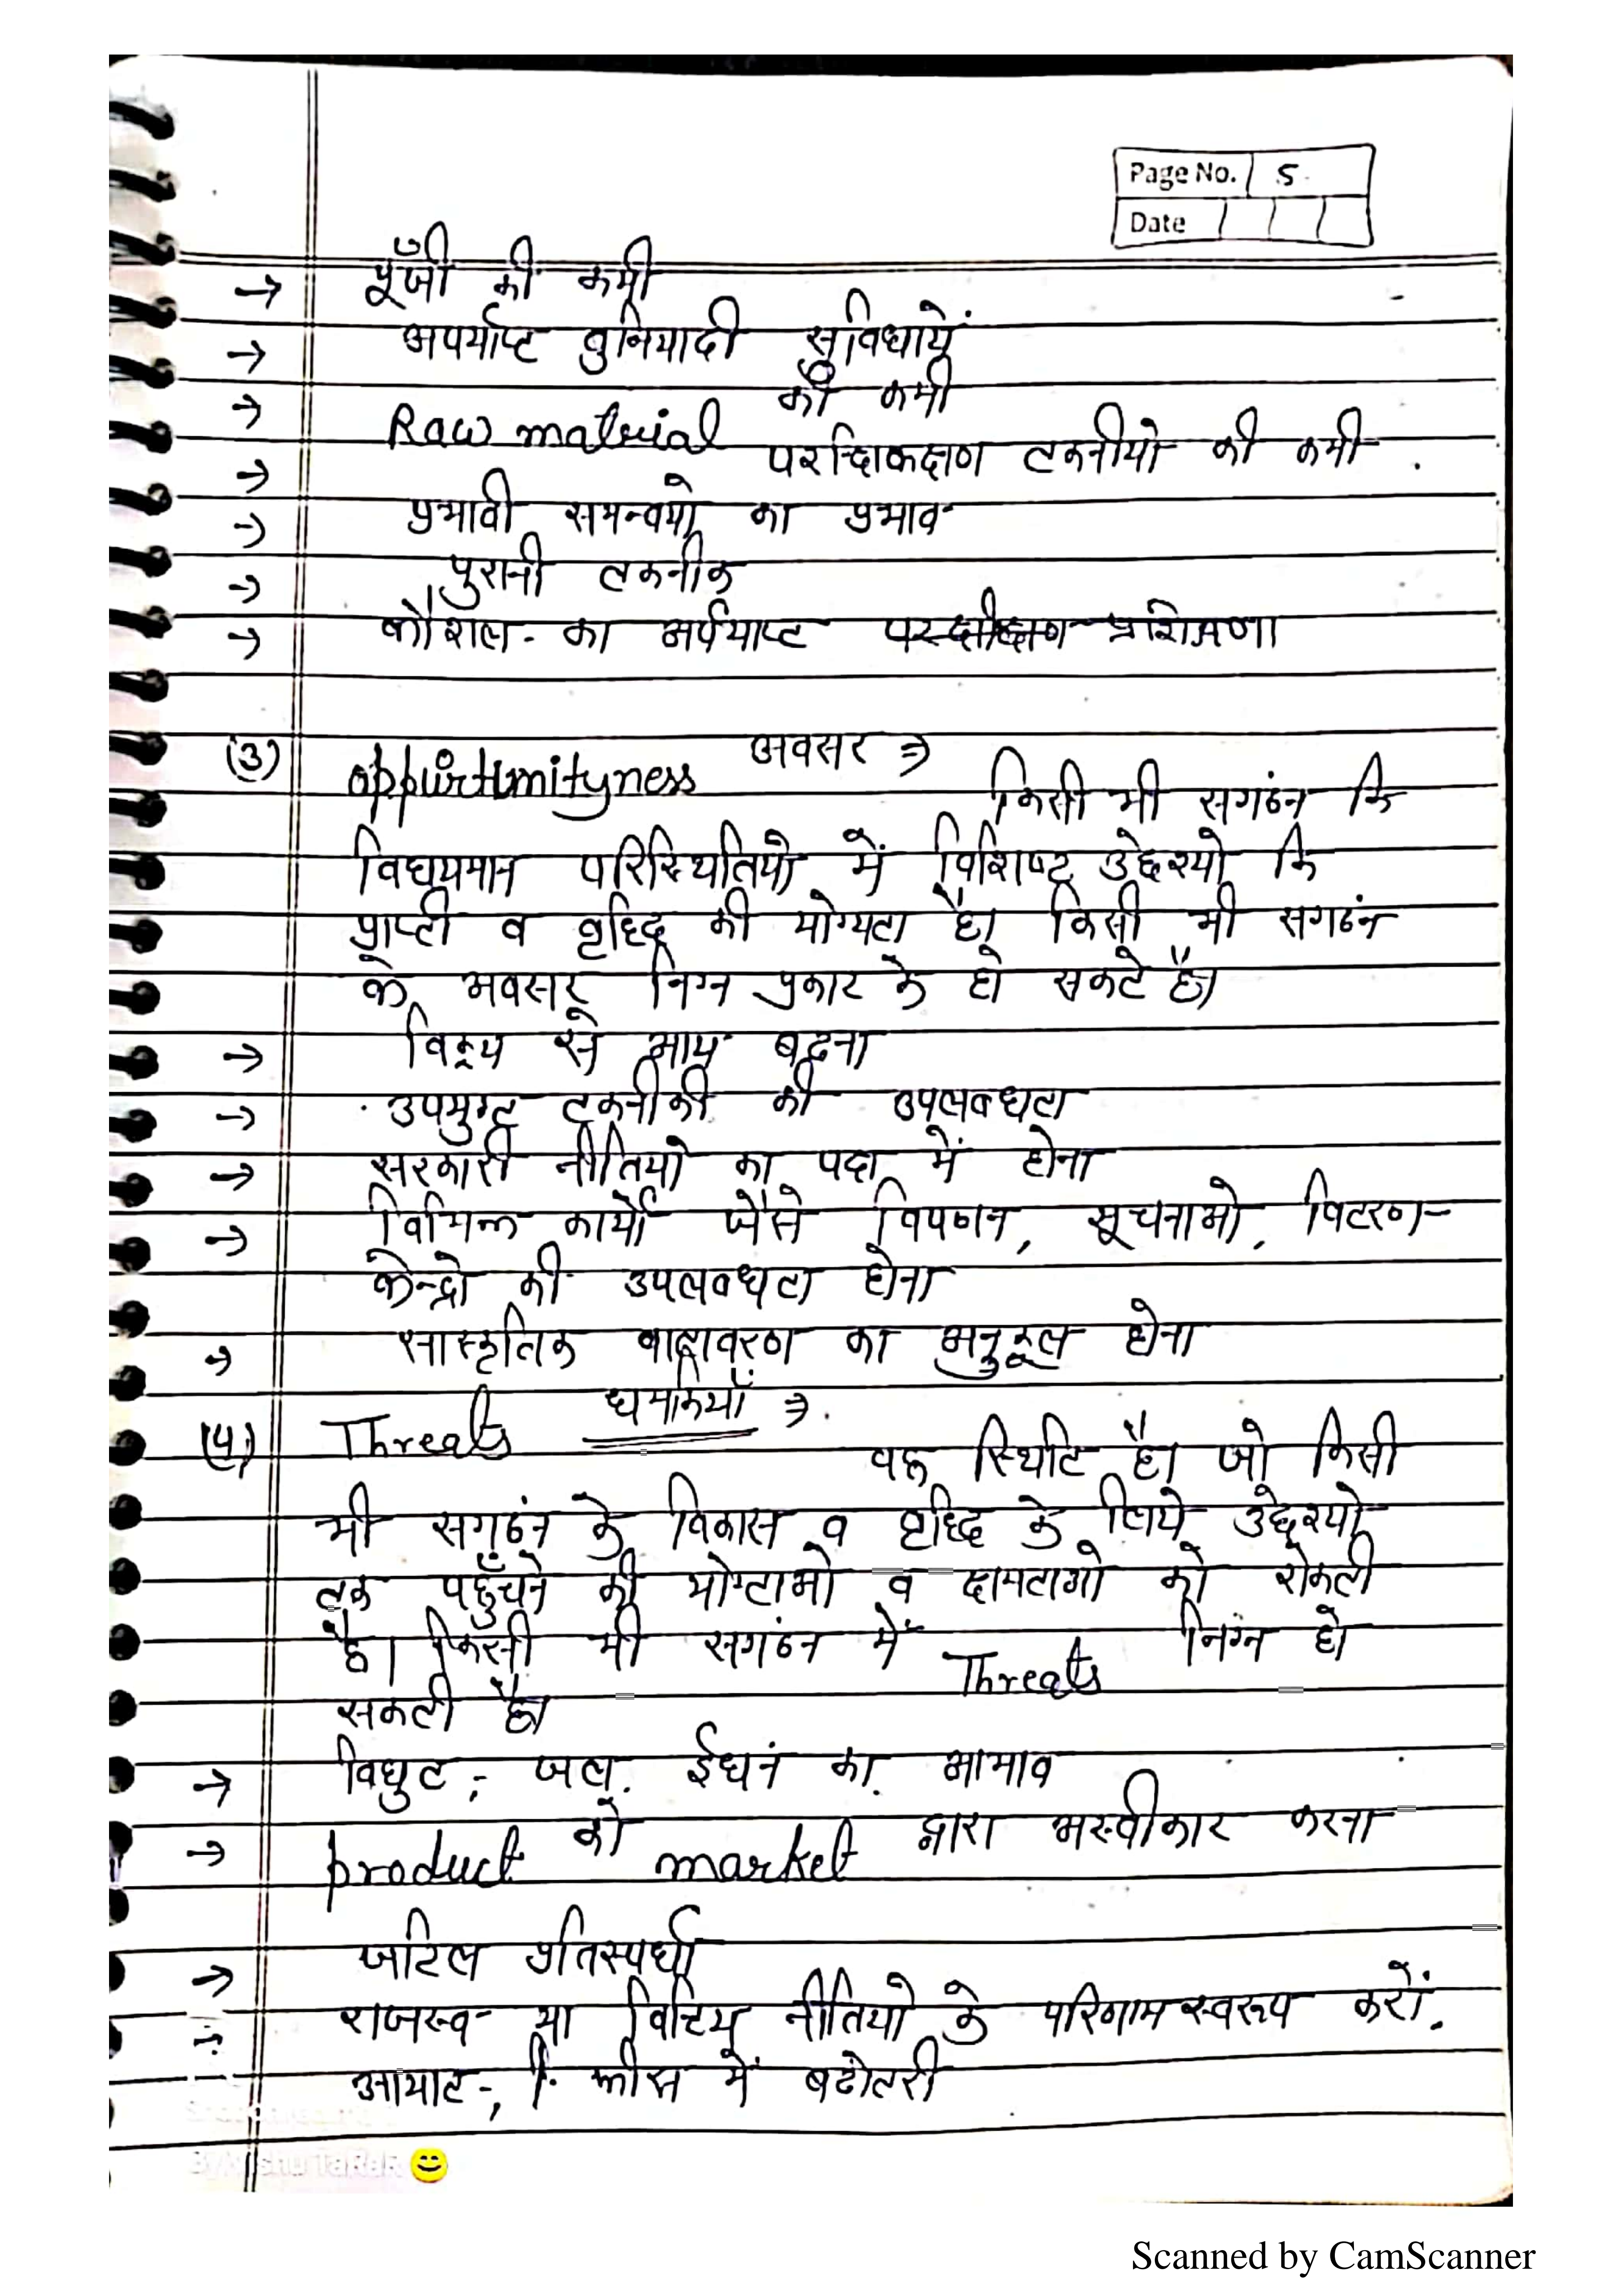 Page No. 5
Date
→ पूँजी की कमी
→ अपर्याप्ट बुनियादी सुविधायें
→ Raw material की कमी
→ टकनीयो की कमी
→ प्रभावी समन्वयो का प्रभाव
→ पुरानी तकनीक
→ कौशल का अर्पयाप्ट
(3) अवसर ⇒
किसी भी सगठंन कि
विधयमान परिस्थितियो में विशिष्ट उद्देश्यो कि
प्राप्टी व वृद्धि की योग्यटा है। किसी भी सगठंन
के अवसर निग्न प्रकार के हो सकटे है।
→ विक्रय से आय बढना
→ उपयुग्ट टकनीकी की उपलबधटा
→ सरकारी नीतियो का पक्ष में होना
→ विभिन्न कार्यो जैसे विपणन, सूचनाओ, विटरण-
केन्द्रो की उपलबधटा होना
→ सास्कृतिक वाटावरण का अनुकूल होना
(4) Threats धमकियाँ ⇒
वह स्थिटि है। जो किसी
भी सगठंन के विकास व वृद्धि के लिये उद्देश्यो
तक पहुँचने की योग्टाओ व को रोकटी
है। किसी भी सगठंन में Threats निग्न हो
सकटी है।
→ विधुट, जल. ईधनं का आभाव
→ product को market द्वारा अस्वीकार करना
→ जटिल प्रतिस्पर्धा
→ राजस्व या विटिय नीतियो के परिणामस्वरूप करों.
आयाट-, फीस में बढोतरी
Scanned by CamScanner